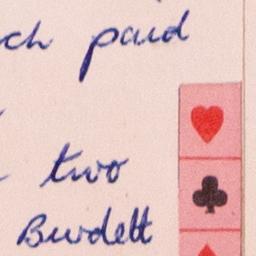 ch paid
two
Burdett